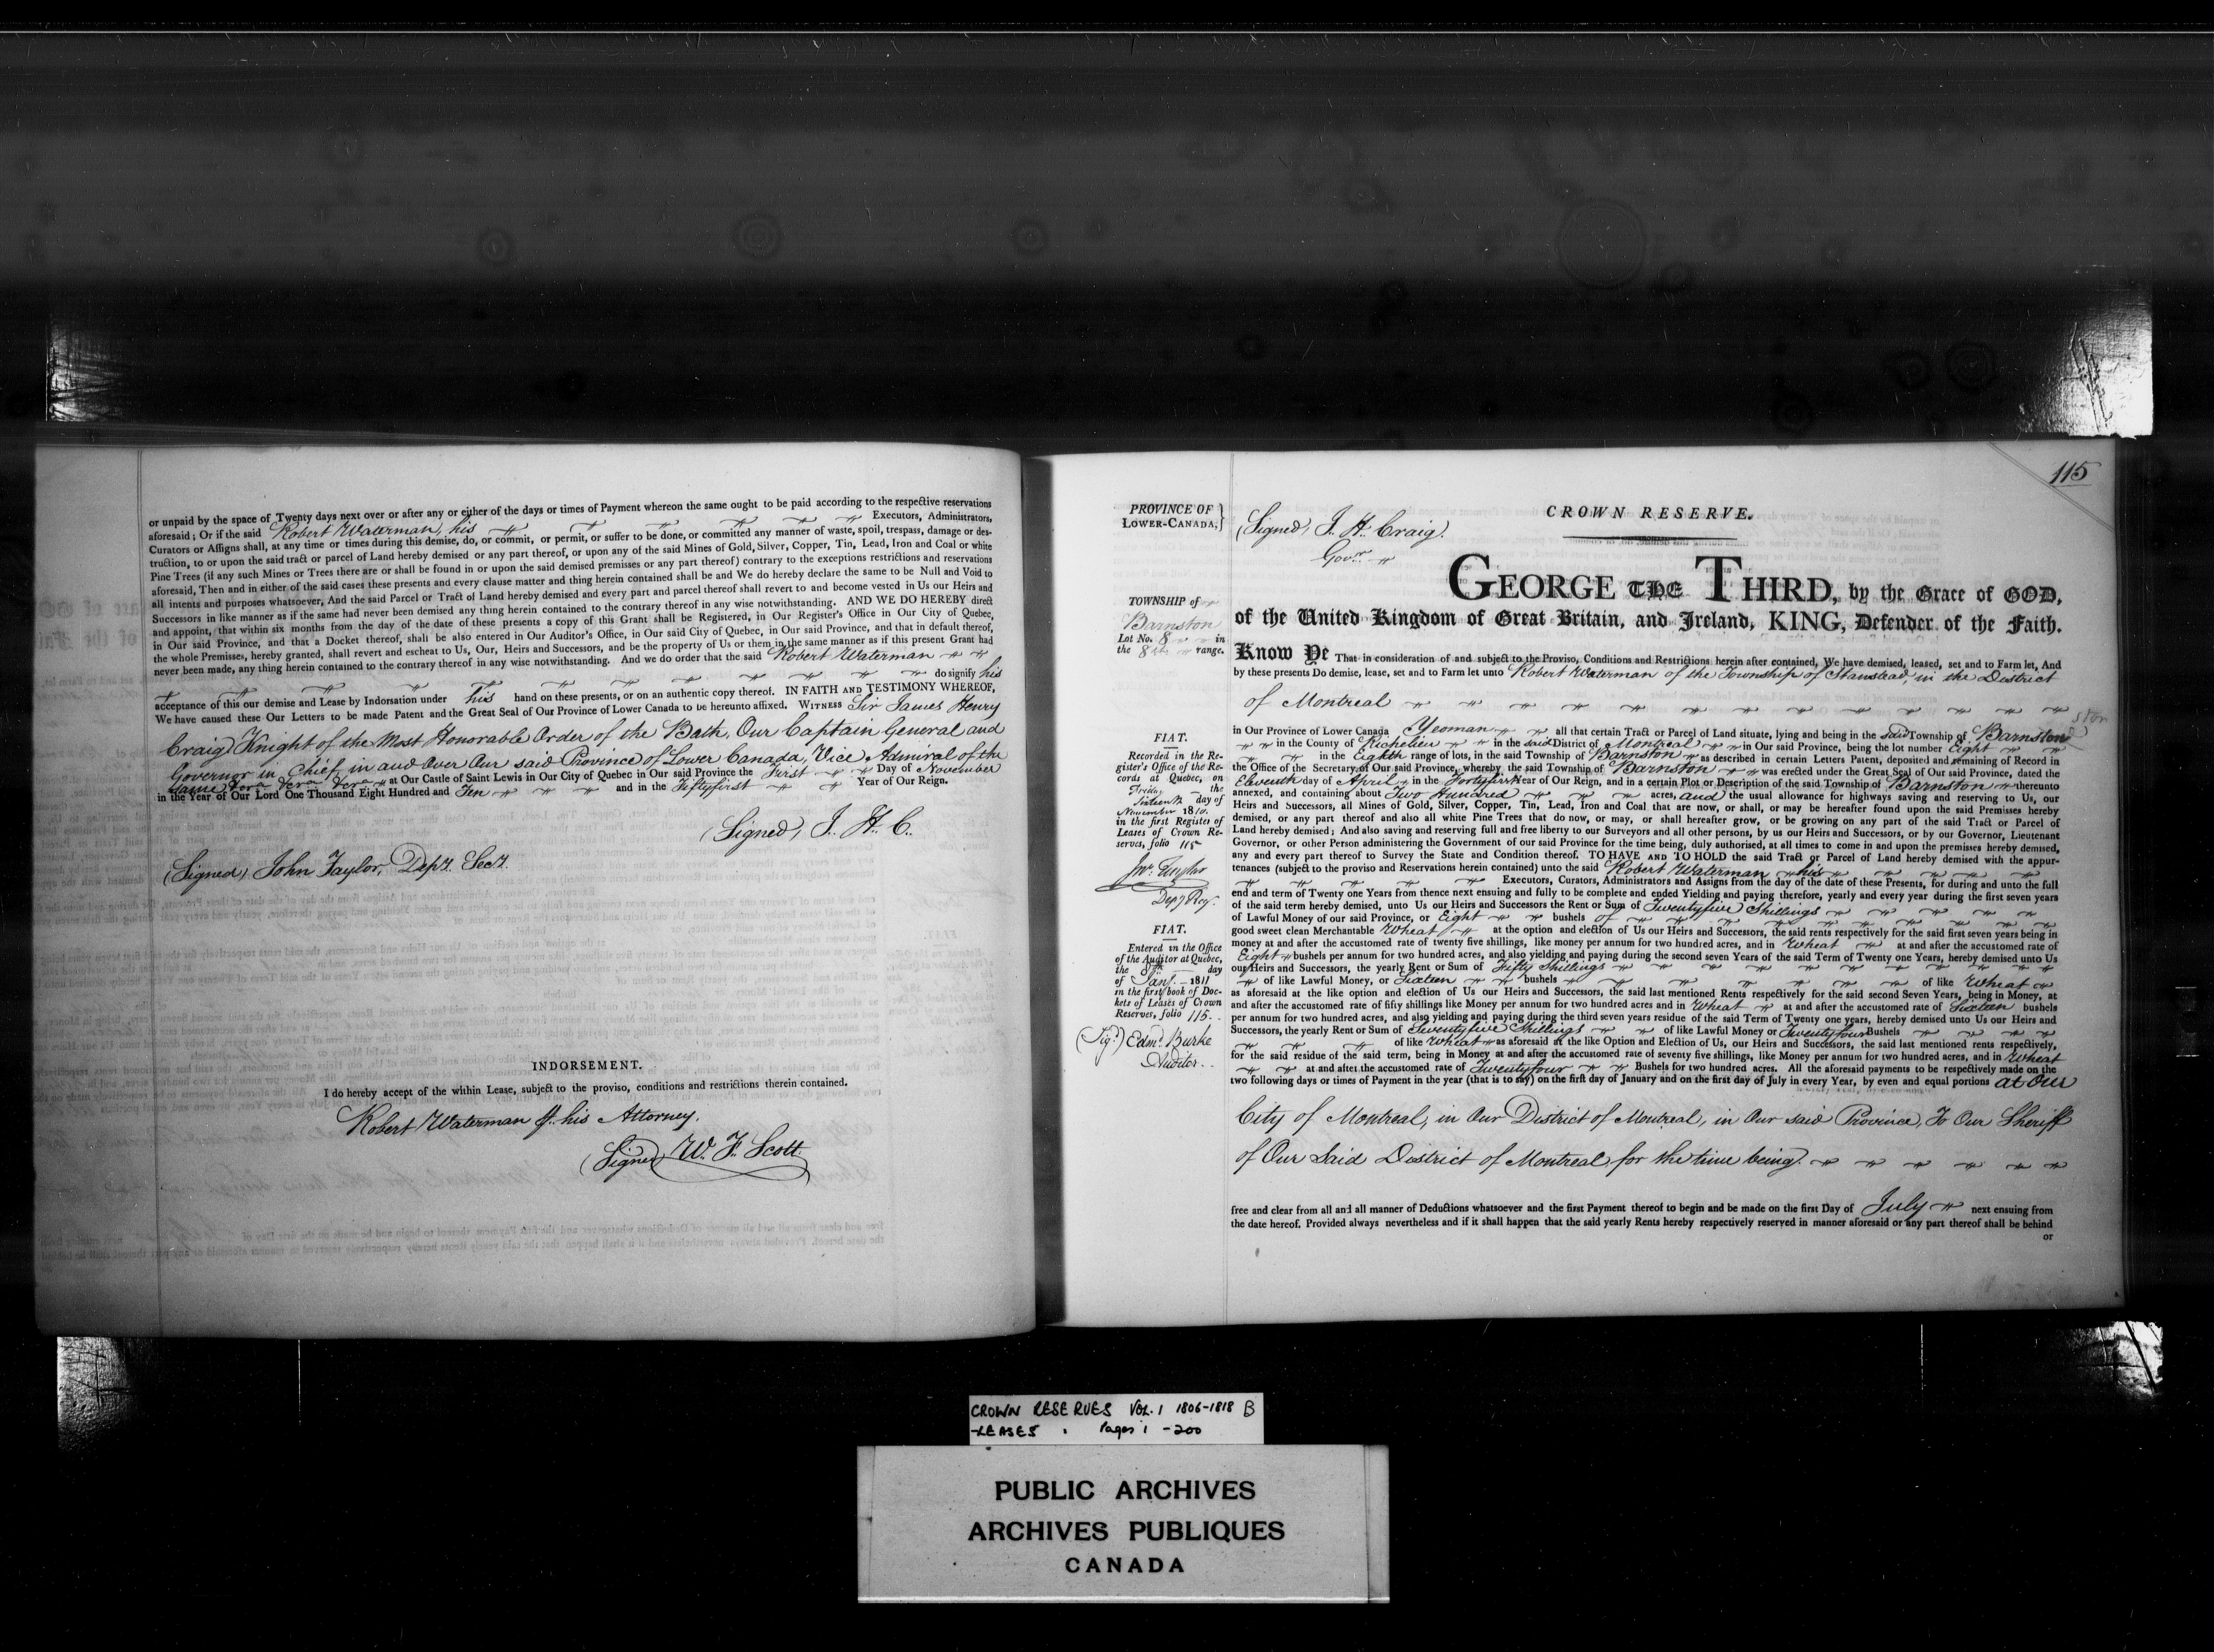 or unpaid by the space of Twenty days next over or after any or either of the days or times of Payment whereon the same ought to be paid according to the respective reservations
aforesaid; Or if the said Robert Waterman, his Executors, Administrators,
Curators or Assigns shall, at any time or times during this demise, do, or commit, or permit, or suffer to be done, or committed any manner of waste, spoil, trespass, damage or des-
truction, to or upon the said tract or parcel of Land hereby demised or any part thereof, or upon any of the said Mines of Gold, Silver, Copper, Tin, Lead, Iron and Coal or white
Pine Trees (if any such Mines or Trees there are or shall be found in or upon the said demised premises or any part thereof) contrary to the exceptions restrictions and reservations
aforesaid, Then and in either of the said cases these presents and every clause matter and thing herein contained shall be and We do hereby declare the same to be Null and Void to
all intents and purposes whatsoever, And the said Parcel or Tract of Land hereby demised and every part and parcel thereof shall revert to and become vested in Us our Heirs and
Successors in like manner as if the same had never been demised any thing herein contained to the contrary thereof in any wise notwithstanding. AND WE DO HEREBY direct
and appoint, that within six months from the day of the date of these presents a copy of this Grant shall be Registered, in Our Register's Office in Our City of Quebec,
in Our said Province, and that a Docket thereof, shall be also entered in Our Auditor's Office, in Our said City of Quebec, in Our said Province, and that in default thereof,
the whole Premisses, hereby granted, shall revert and escheat to Us, Our, Heirs and Successors, and be the property of Us or them in the same manner as if this present Grant had
never been made, any thing herein contained to the contrary thereof in any wise notwithstanding. And we do order that the said Robert Waterman
do signify his
acceptance of this our demise and Lease by Indorsation under his hand on these presents, or on an authentic copy thereof. IN FAITH AND TESTIMONY WHEREOF,
We have caused these Our Letters to be made Patent and the Great Seal of Our Province of Lower Canada to be hereunto affixed. WITNESS Sir James Henry
Craig Knight of the Most Honorable Order of the Bath, Our Captain General and
Governor in Chief, in and Over Our said Province of Lower Canada, Vice Admiral of the
Same &c.ra &c.ra &c.ra at Our Castle of Saint Lewis in Our City of Quebec in Our said Province the First Day of November
in the Year of Our Lord One Thousand Eight Hundred and Ten and in the Fiftyfirst Year of Our Reign.
(Signed) J. H. C.
(Signed) John Taylor, Depy. Secy.
INDORSEMENT.
I do hereby accept of the within Lease, subject to the proviso, conditions and restrictions therein contained.
Robert Waterman pr. his Attorney.
(Signed) W. F. Scott.
115
PROVINCE OF
LOWER-CANADA,}
(Signed) J. H. Craig.
Govr.
CROWN RESERVE.
GEORGE THE THIRD, by the Grace of GOD,
of the United Kingdom of Great Britain, and Ireland, KING, Defender of the Faith.
TOWNSHIP of
Barnston
Lot No. 8 in
the 8th range.
Know Ye That in consideration of and subject to the Proviso, Conditions and Restrictions herein after contained, We have demised, leased, set and to Farm let, And
by these presents Do demise, lease, set and to Farm let unto Robert Waterman of the Township of Stanstead, in the District
of Montreal
in Our Province of Lower Canada Yeoman all that certain Tract or Parcel of Land situate, lying and being in the Said Township of Barnston
in the County of Richelieu in the said District of Montreal in Our said Province, being the lot number Eight
in the Eighth range of lots, in the said Township of Barnston as described in certain Letters Patent, deposited and remaining of Record in
the Office of the Secretary of Our said Province, whereby the said Township of Barnston was erected under the Great Seal of Our said Province, dated the
Eleventh day of April in the Fortyfirst Year of Our Reign, and in a certain Plot or Description of the said Township of Barnston thereunto
annexed, and containing about Two Hundred acres, and the usual allowance for highways saving and reserving to Us, our
Heirs and Successors, all Mines of Gold, Silver, Copper, Tin, Lead, Iron and Coal that are now, or shall, or may be hereafter found upon the said Premisses hereby
demised, or any part thereof and also all white Pine Trees that do now, or may, or shall hereafter grow, or be growing on any part of the said Tract or Parcel of
Land hereby demised; And also saving and reserving full and free liberty to our Surveyors and all other persons, by us our Heirs and Successors, or by our Governor, Lieutenant
Governor, or other Person administering the Government of our said Province for the time being, duly authorised, at all times to come in and upon the premises hereby demised,
any and every part thereof to Survey the State and Condition thereof. TO HAVE AND TO HOLD the said Tract or Parcel of Land hereby demised with the appur-
tenances (subject to the proviso and Reservations herein contained) unto the said Robert Waterman his
Executors, Curators, Administrators and Assigns from the day of the date of these Presents, for during and unto the full
end and term of Twenty one Years from thence next ensuing and fully to be complete and ended Yielding and paying therefore, yearly and every year during the first seven years
of the said term hereby demised, unto Us our Heirs and Successors the Rent or Sum of Twentyfive Shillings
of Lawful Money of our said Province, or Eight bushels of
good sweet clean Merchantable Wheat at the option and election of Us our Heirs and Successors, the said rents respectively for the said first seven years being in
money at and after the accustomed rate of twenty five shillings, like money per annum for two hundred acres, and in Wheat at and after the accustomed rate of
Eight bushels per annum for two hundred acres, and also yielding and paying during the second seven Years of the said Term of Twenty one Years, hereby demised unto Us
our Heirs and Successors, the yearly Rent or Sum of Fifty Shillings
of like Lawful Money, or Sixteen bushels of like Wheat
as aforesaid at the like option and election of Us our Heirs and Successors, the said last mentioned Rents respectively for the said second Seven Years, being in Money, at
and after the accustomed rate of fifty shillings like Money per annum for two hundred acres and in Wheat at and after the accustomed rate of Sixteen bushels
per annum for two hundred acres, and also yielding and paying during the third seven years residue of the said Term of Twenty one years, hereby demised unto Us our Heirs and
Successors, the yearly Rent or Sum of Seventyfive Shillings of like Lawful Money or Twentyfour Bushels
of like Wheat as aforesaid at the like Option and Election of Us, our Heirs and Successors, the said last mentioned rents respectively,
for the said residue of the said term, being in Money at and after the accustomed rate of seventy five shillings, like Money per annum for two hundred acres, and in Wheat
at and after the accustomed rate of Twentyfour Bushels for two hundred acres. All the aforesaid payments to be respectively made on the
two following days or times of Payment in the year (that is to say) on the first day of January and on the first day of July in every Year, by even and equal portions at Our
City of Montreal, in Our District of Montreal, in Our said Province, To Our Sheriff
of Our Said District of Montreal for the time being.
free and clear from all and all manner of Deductions whatsoever and the first Payment thereof to begin and be made on the first Day of July next ensuing from
the date hereof. Provided always nevertheless and if it shall happen that the said yearly Rents hereby respectively reserved in manner aforesaid or any part thereof shall be behind
or
FIAT.
Recorded in the Re-
gister's Office of the Re-
cords at Quebec, on
Friday the
Sixteenth day of
November 1810.
in the first Register of
Leases of Crown Re-
serves, folio 115
Jno. Taylor
Depy Reg.
FIAT.
Entered in the Office
of the Auditor at Quebec,
the 8th day
of Jany. 1811
in the first book of Doc-
kets of Leases of Crown
Reserves, folio 115.
(Sigd.) Edmd. Burke
Auditor.
CROWN RESERVES VOL. 1 1806-1818 B
-LEASES Pages 1 - 200
PUBLIC ARCHIVES
ARCHIVES PUBLIQUES
CANADA